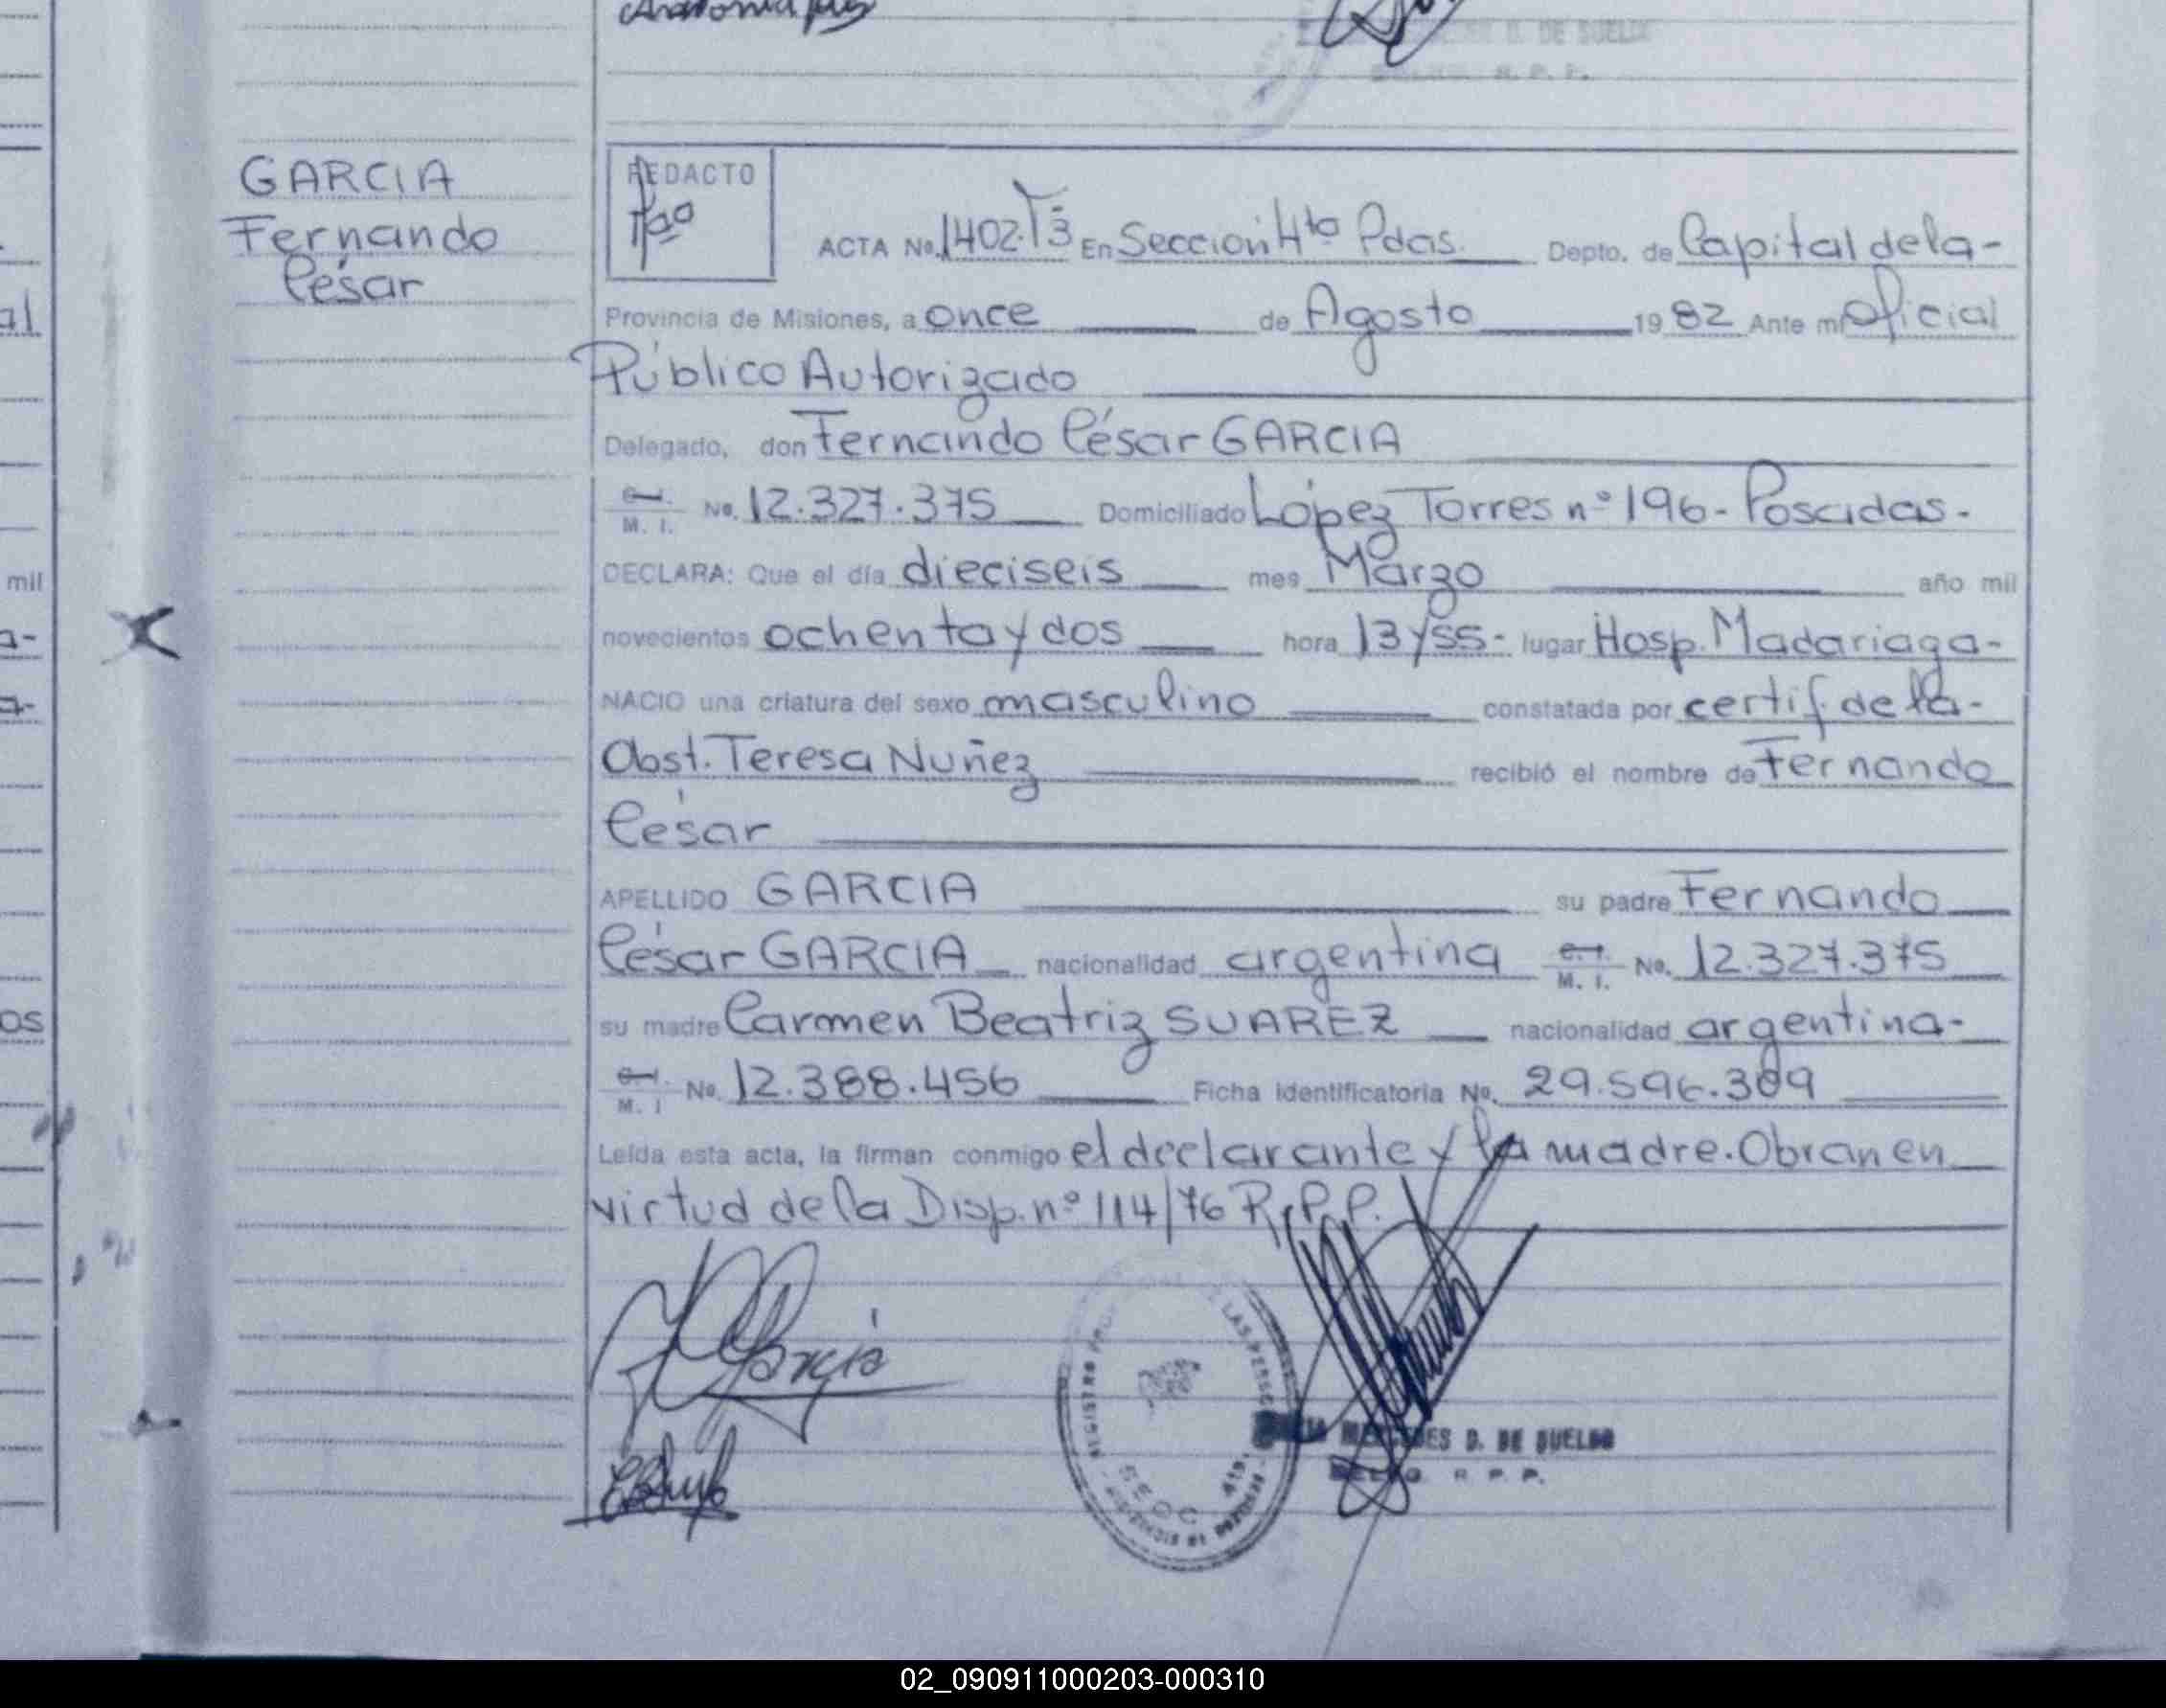 D. DE SUELDO
R. P. P.
GARCIA
Fernando
César
REDACTO
ACTA No. 1402.Tº3 En Sección 4ta Pdas. Depto. de Capital de la-
Provincia de Misiones, a once de Agosto 1982 Ante mí Oficial
Público Autorizado
Delegado, don Fernando César GARCIA
C.I. M. I. No. 12.327.375 Domiciliado López Torres nº 196- Posadas.
DECLARA: Que el día dieciseis mes Marzo año mil
novecientos ochenta y dos hora 13 y 55- lugar Hosp. Madariaga-
NACIO una criatura del sexo masculino constatada por certif. de la-
Obst. Teresa Nuñez recibió el nombre de Fernando
César
APELLIDO GARCIA su padre Fernando
César GARCIA nacionalidad argentina C.I. M. I. No. 12.327.375
su madre Carmen Beatriz SUAREZ nacionalidad argentina-
C.I. M. I No. 12.388.456 Ficha Identificatoria No. 29.596.309
Leída esta acta, la firman conmigo el declarante y la madre. Obran en
virtud de la Disp. nº 114/76 R.P.P.
Garcia
MERCEDES D. DE SUELDO
R. P. P.
mil
os
02_090911000203-000310